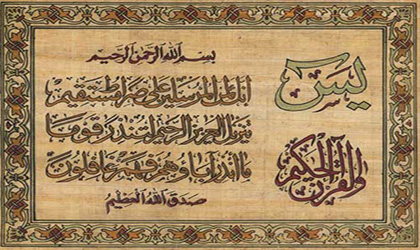 بسم الله الرحمن الرحيم
يس
والقرآن الحكيم
إنك لمن المرسلين على صراط مستقيم
تنزيل العزيز الرحيم لتنذر قوما
ما أنذر آباؤهم فهم غافلون
صدق الله العظيم